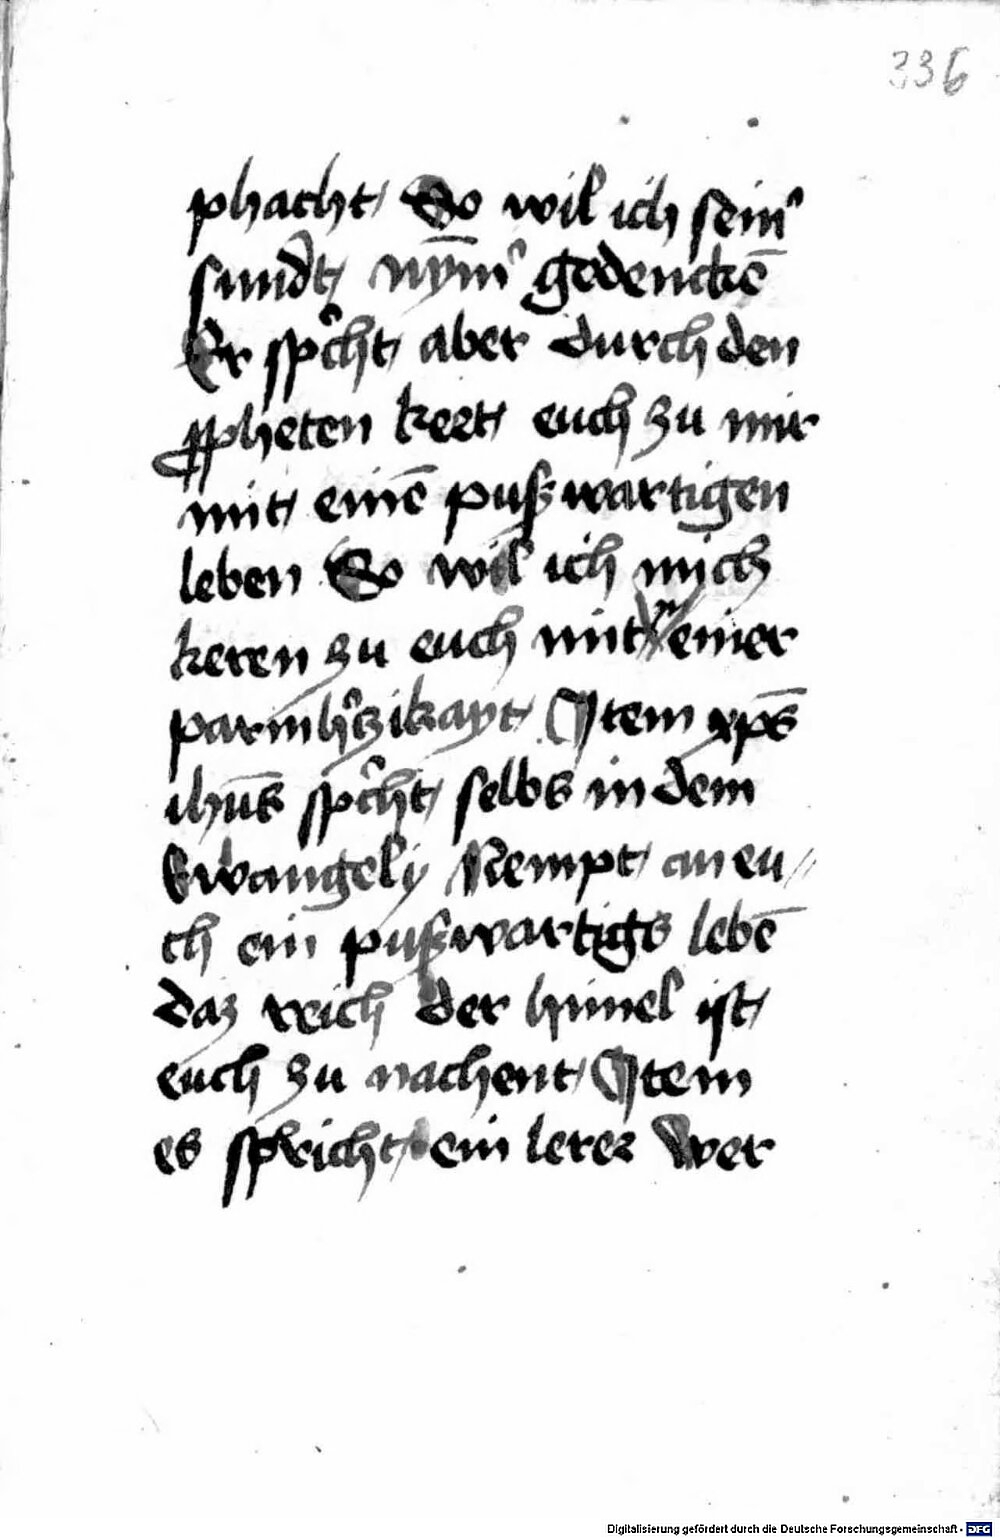 336
phacht So wil ich sein᾽
sundt nȳm᾽ gedenckē
Er sp᾽cht aber durch den
ꝓpheten kert euch zu mir
mit einē pußwartigen
leben So wil ich mich
keren zu euch mit einer
parmh᾽tzikayt Item xp̄s
ihūs sp᾽cht selbs in dem
Ewangely Nempt an eu//
ch ein pußwartigs lebē
daz reich der himel ist
euch zu nachent Item
es spricht ein lerer Wer
Digitalisierung gefördert durch die Deutsche Forschungsgemeinschaft - DFG